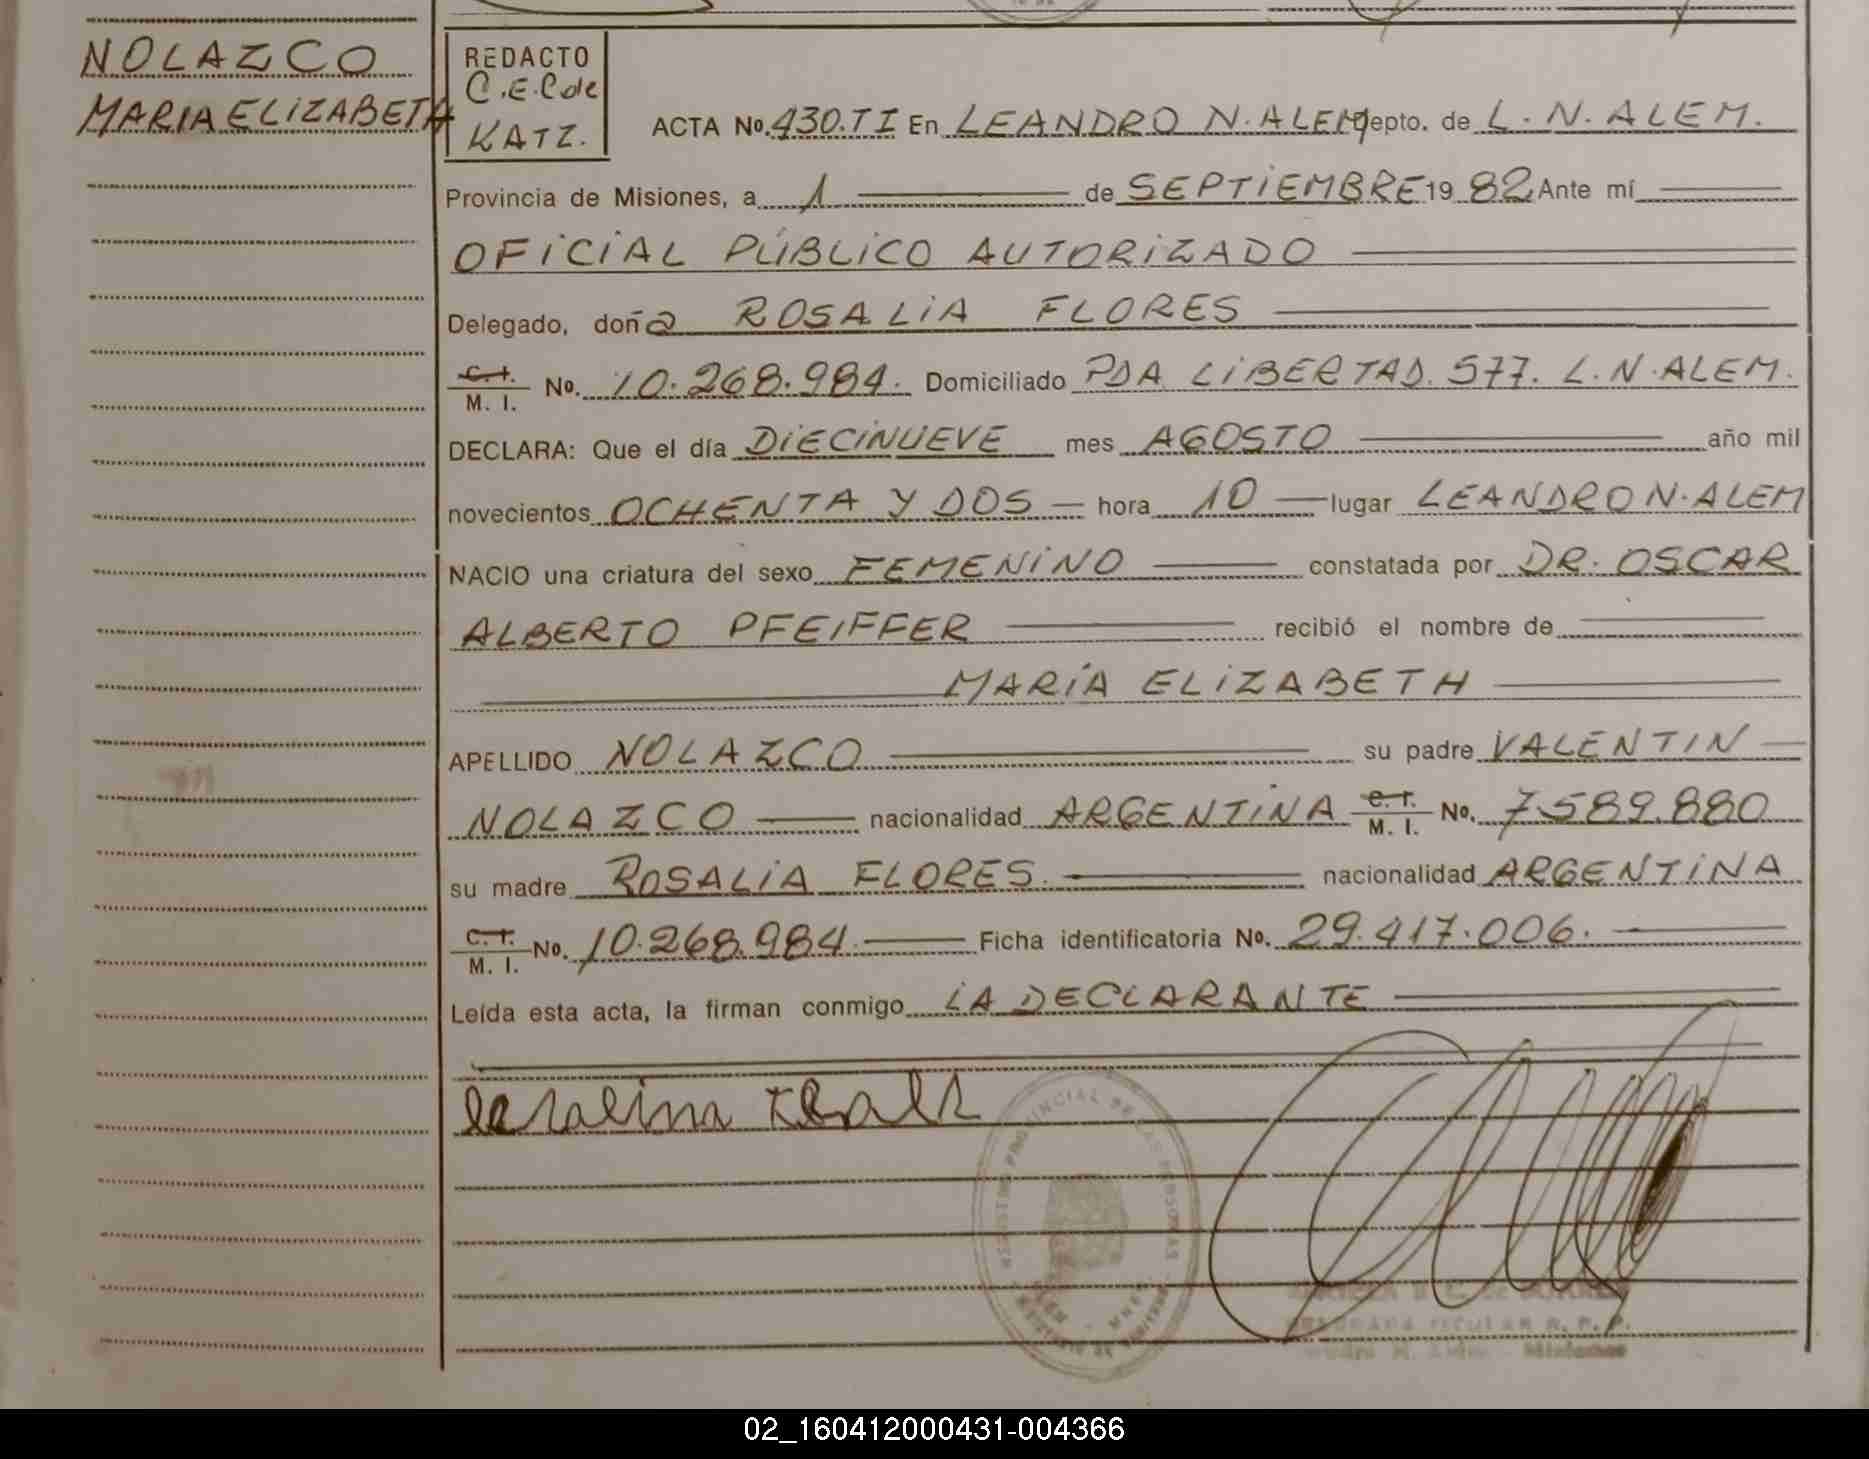 NOLAZCO
MARIA ELIZABETH
REDACTO
C.E.C de
KATZ.
ACTA No. 430.TI En LEANDRO N. ALEM depto. de L. N. ALEM.
Provincia de Misiones, a 1 de SEPTIEMBRE 19 82 Ante mí
OFICIAL PÚBLICO AUTORIZADO
Delegado, doña ROSALIA FLORES
C. I. M. I. No. 10.268.984. Domiciliado PDA LIBERTAD. 577. L.N.ALEM.
DECLARA: Que el día DIECINUEVE mes AGOSTO año mil
novecientos OCHENTA Y DOS hora 10 lugar LEANDRO N. ALEM
NACIO una criatura del sexo FEMENINO constatada por DR. OSCAR
ALBERTO PFEIFFER recibió el nombre de
MARÍA ELIZABETH
APELLIDO NOLAZCO su padre VALENTIN
NOLAZCO nacionalidad ARGENTINA C. I. M. I. No. 7.589.880
su madre ROSALIA FLORES. nacionalidad ARGENTINA
C. I. M. I. No. 10.268.984. Ficha identificatoria No. 29.417.006.
Leída esta acta, la firman conmigo LA DECLARANTE
REGISTRO PROVINCIAL DE LAS PERSONAS
02_160412000431-004366